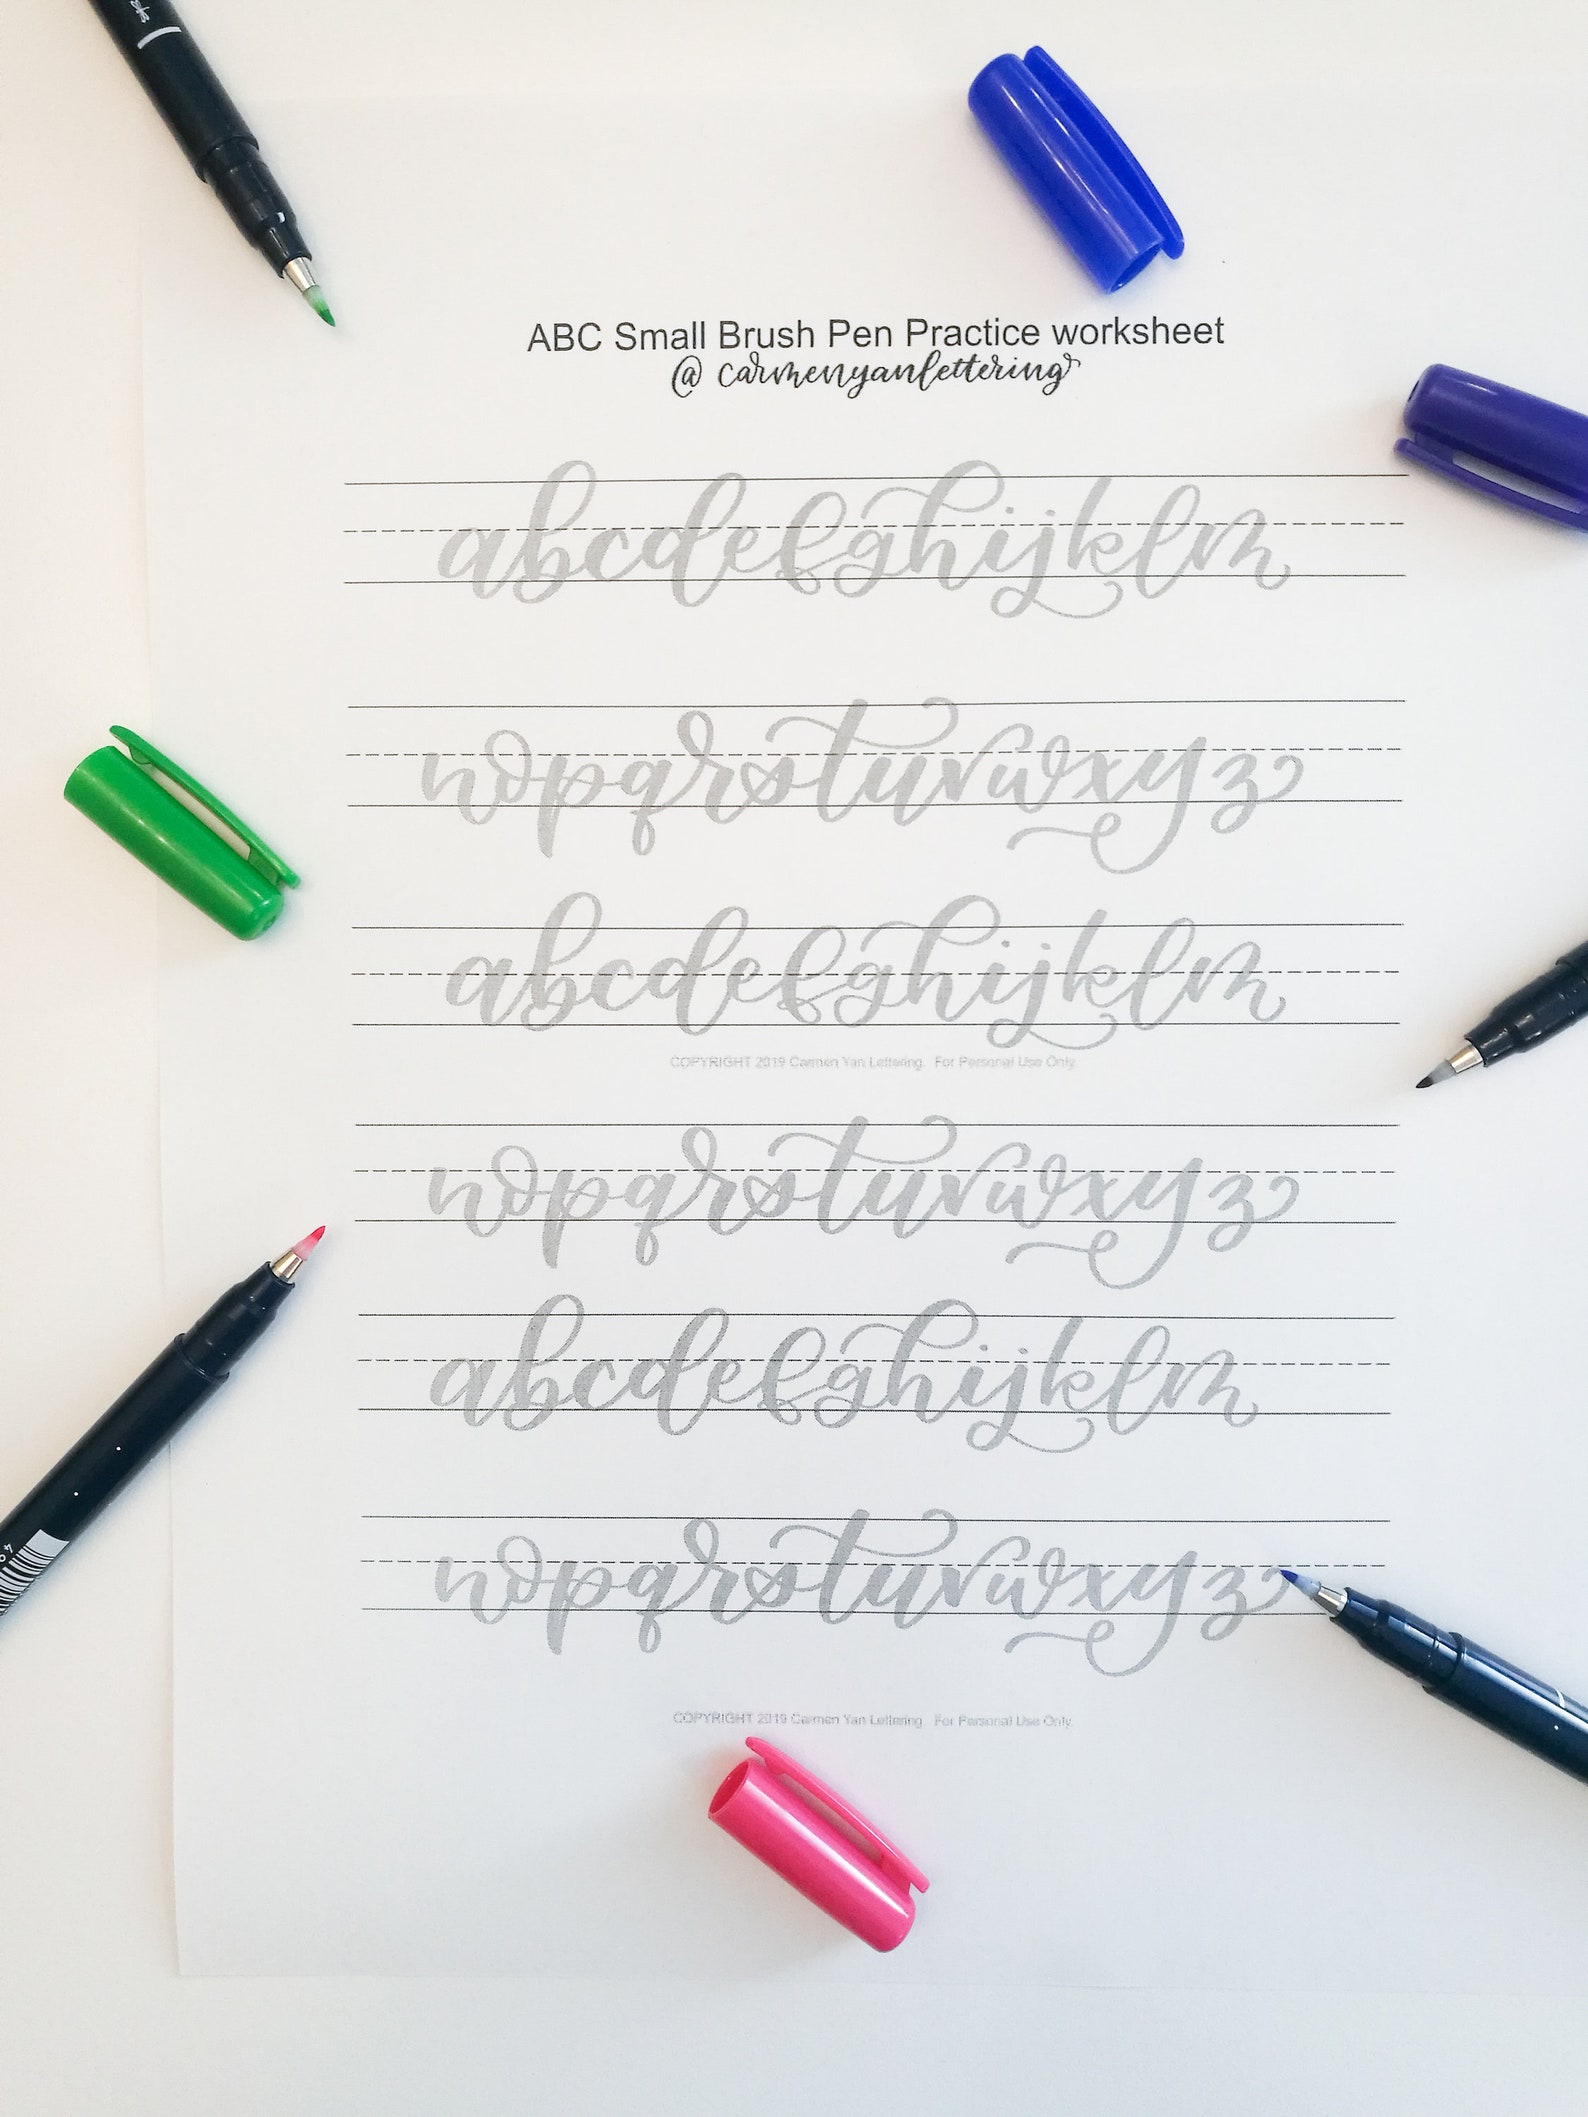 ABC Small Brush Pen Practice worksheet
@carmenyanlettering
abcdefghijklm
nopqrstuvwxyz
abcdefghijklm
COPYRIGHT 2019 Carmen Yan Lettering. For Personal Use Only.
nopqrstuvwxyz
abcdefghijklm
nopqrstuvwxyz
COPYRIGHT 2019 Carmen Yan Lettering. For Personal Use Only.